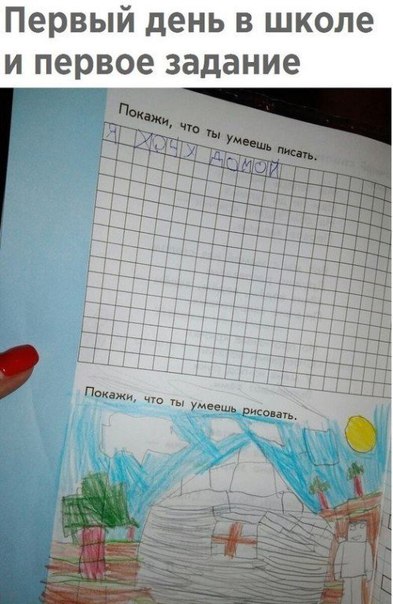 Первый день в школе
и первое задание
Покажи, что ты умеешь писать.
Я ХОЧУ ДОМОЙ
Покажи, что ты умеешь рисовать.